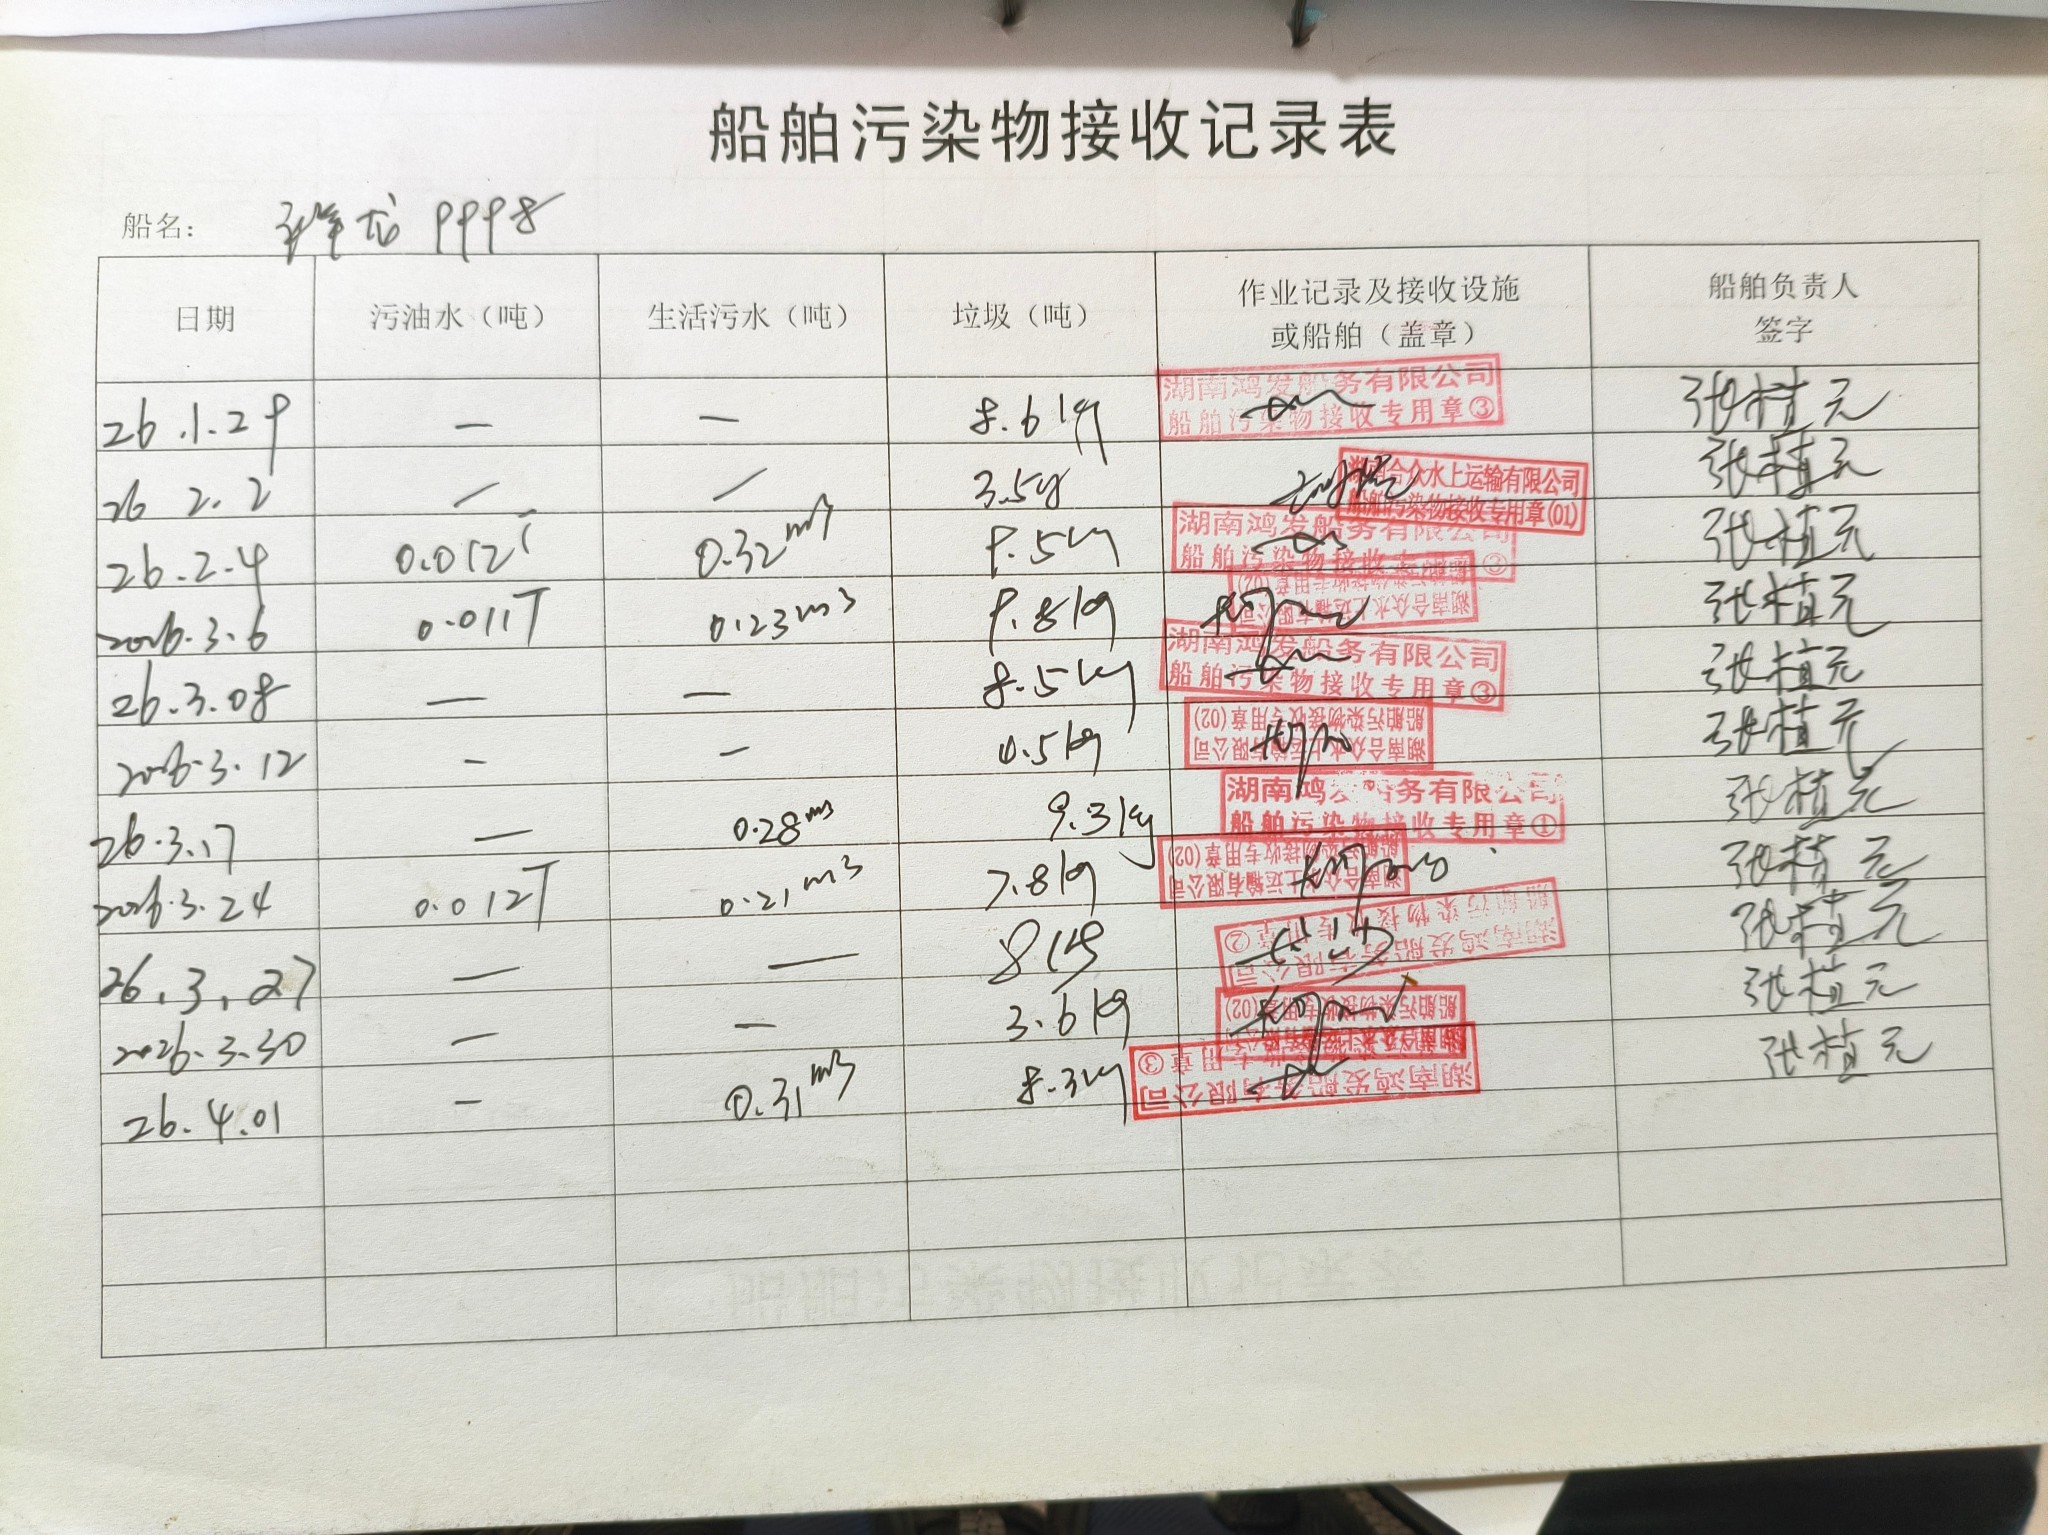 船舶污染物接收记录表
船名： 祥龙 9998
日期 污油水（吨） 生活污水（吨） 垃圾（吨） 作业记录及接收设施或船舶（盖章） 船舶负责人签字
26.1.29 — — 8.6kg 湖南鸿发船务有限公司 船舶污染物接收专用章③ 张植元
26 2.2 / / 3.5kg 湖南合众水上运输有限公司 船舶污染物接收专用章(01) 张植元
26.2.4 0.012T 0.32m3 9.5kg 湖南鸿发船务有限公司 船舶污染物接收专用章 张植元
2026.3.6 0.011T 0.23m3 9.8kg 湖南合众水上运输有限公司 船舶污染物接收专用章(02) 张植元
26.3.08 — — 8.5kg 湖南鸿发船务有限公司 船舶污染物接收专用章③ 张植元
2026.3.12 — — 4.5kg 湖南合众水上运输有限公司 船舶污染物接收专用章(02) 张植元
26.3.17 — 0.28m3 9.3kg 湖南鸿发船务有限公司 船舶污染物接收专用章① 张植元
2026.3.24 0.012T 0.21m3 7.8kg 湖南合众水上运输有限公司 船舶污染物接收专用章(02) 张植元
26.3.27 — — 8kg 湖南鸿发船务有限公司 船舶污染物接收专用章② 张植元
2026.3.30 — — 3.6kg 湖南合众水上运输有限公司 船舶污染物接收专用章(02) 张植元
26.4.01 — 0.31m3 8.3kg 湖南鸿发船务有限公司 专用章③ 张植元